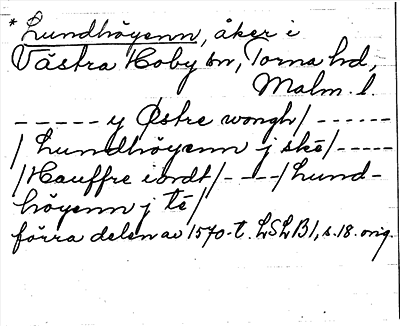 * Lundhöyenn, åker i
Västra Hoby sn, Torna hd,
Malm. l.
- - - - - y Østre wongh/ - - - - - -
/ Lundhöyenn j skē/ - - - - -
/Hauffre iordt/ - - - -/Lund-
höyenn j tē/
förra delen av 1570-t. LSLB1, s. 18. orig.